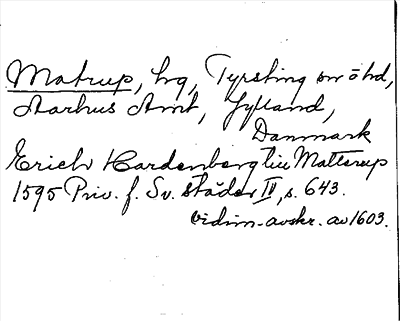 Matrup, hg, Tyrsting sn o hd,
Aarhus Amt, Jylland,
Danmark
Erich Hardenberg till Matterup
1595 Priv. f. Sv. städer IV, s. 643.
vidim. avskr. av 1603.